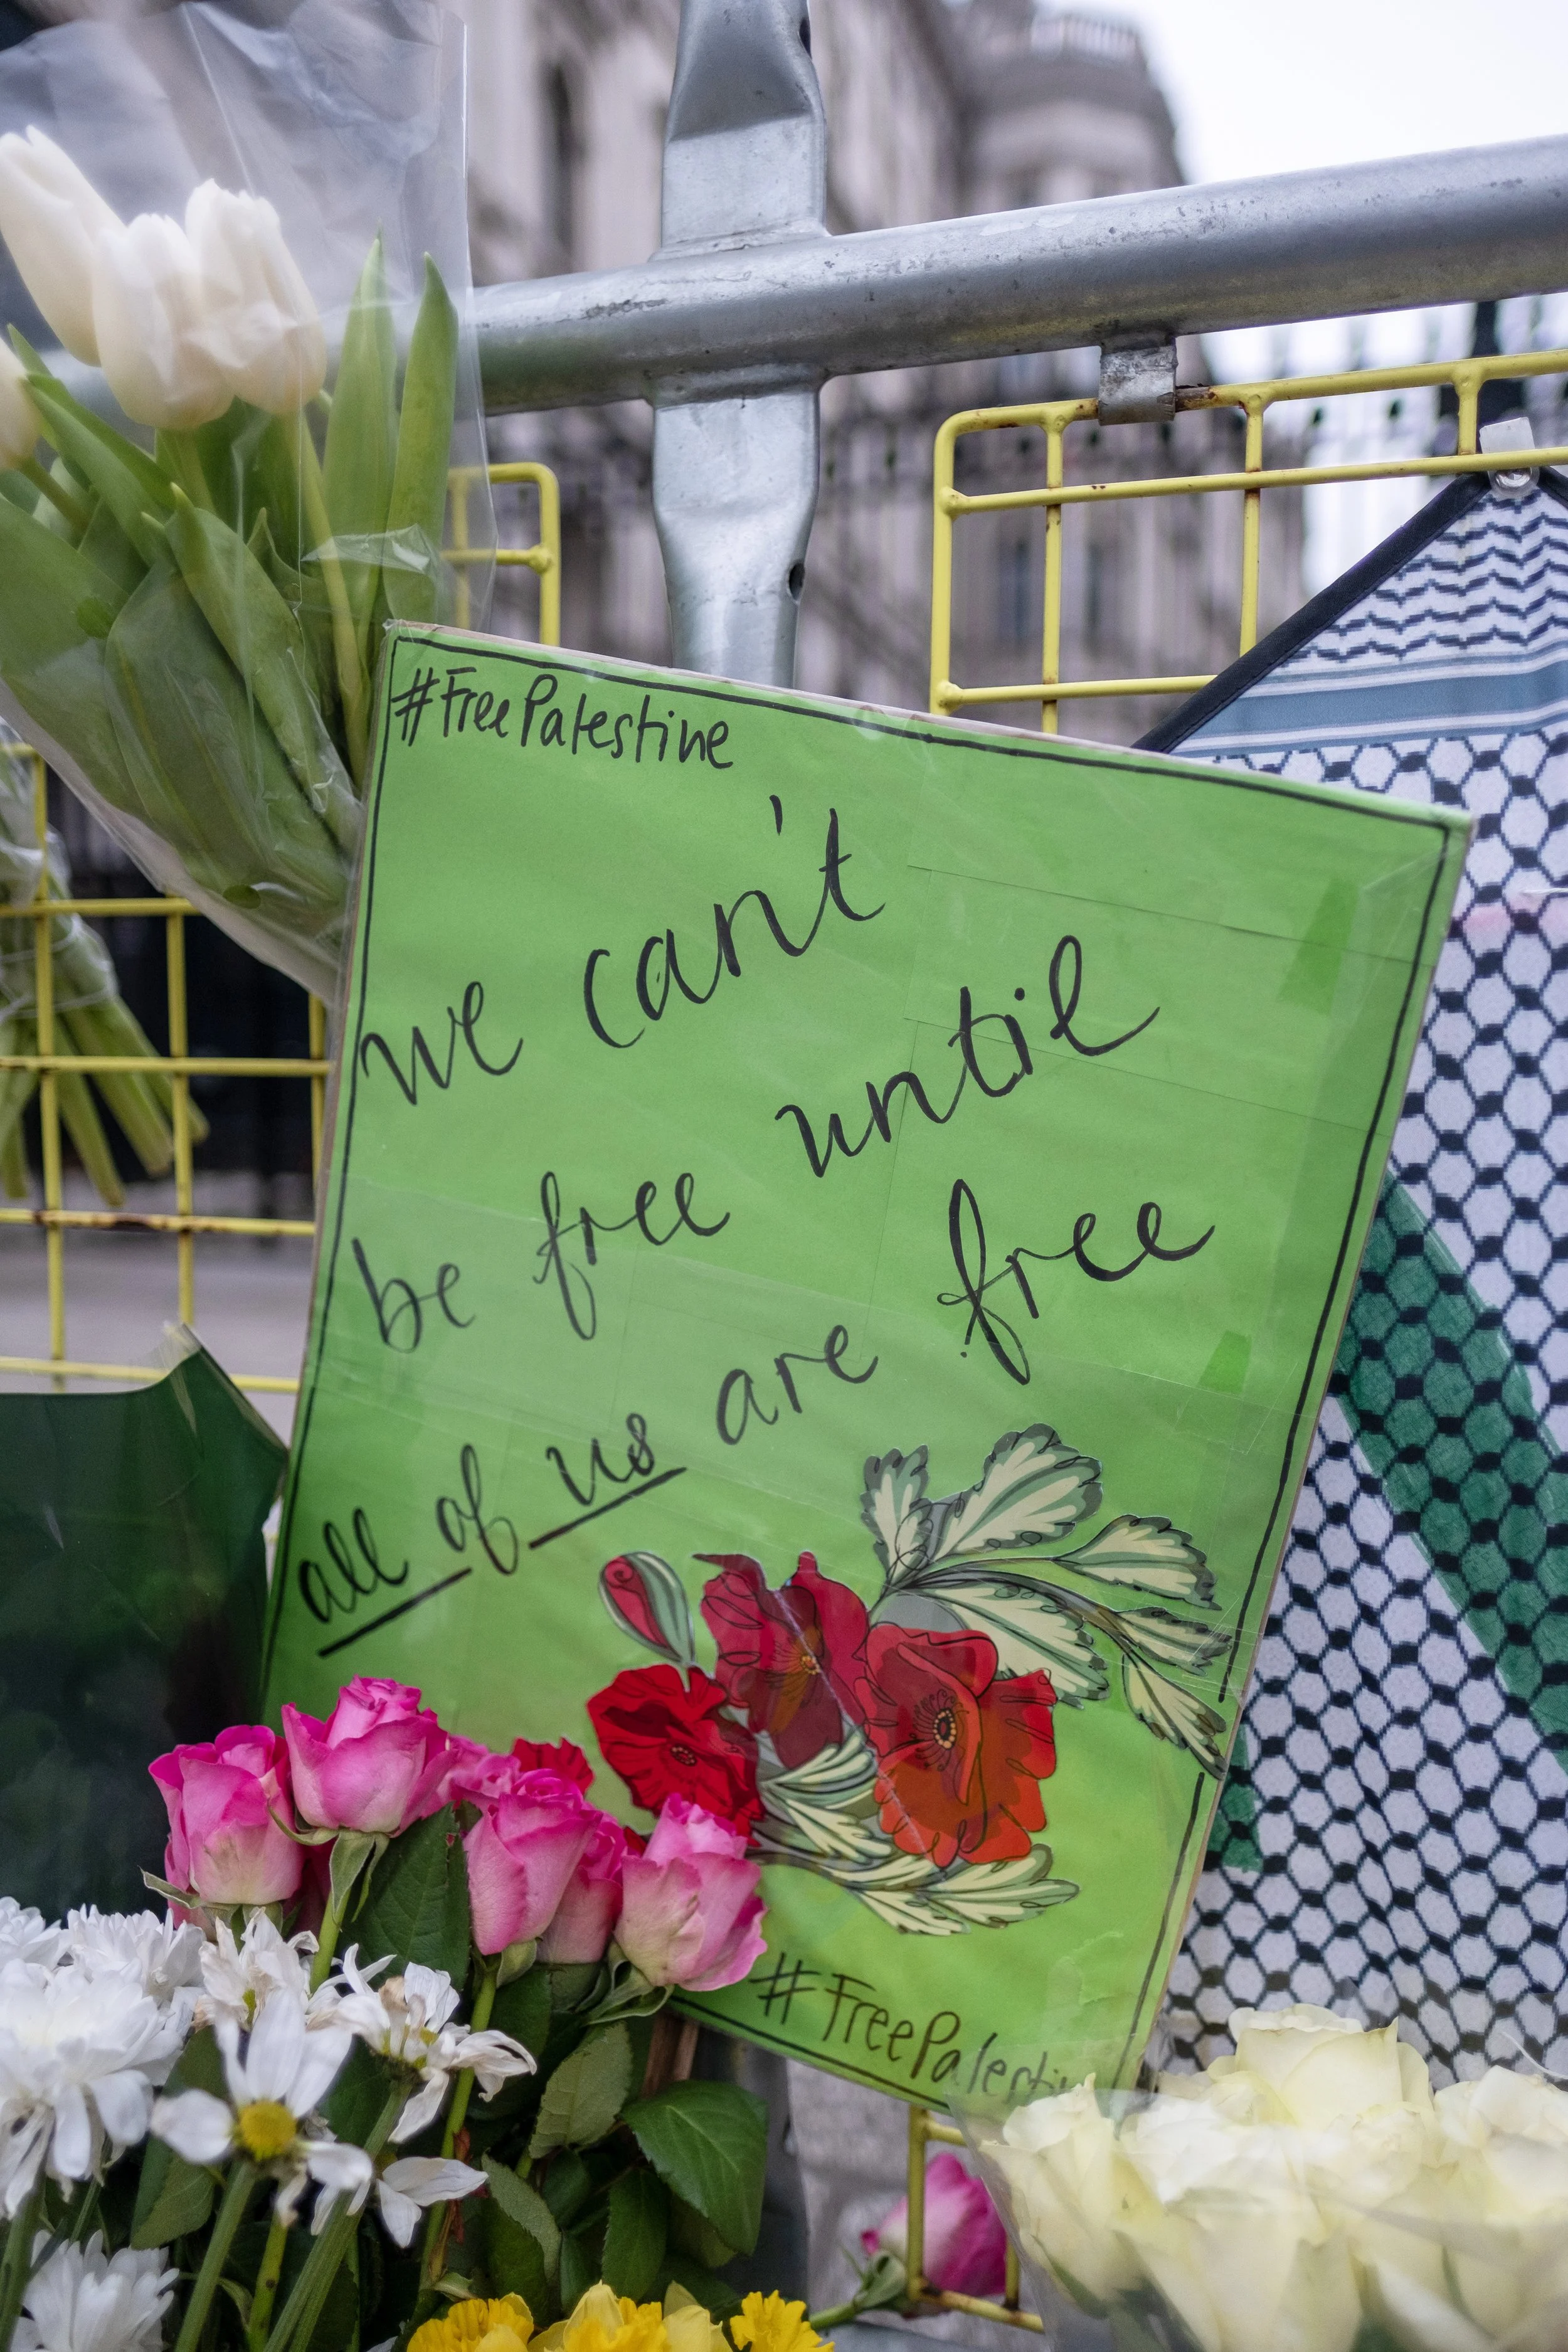 #FreePalestine
we can't
be free until
all of us are free
#FreePalestin